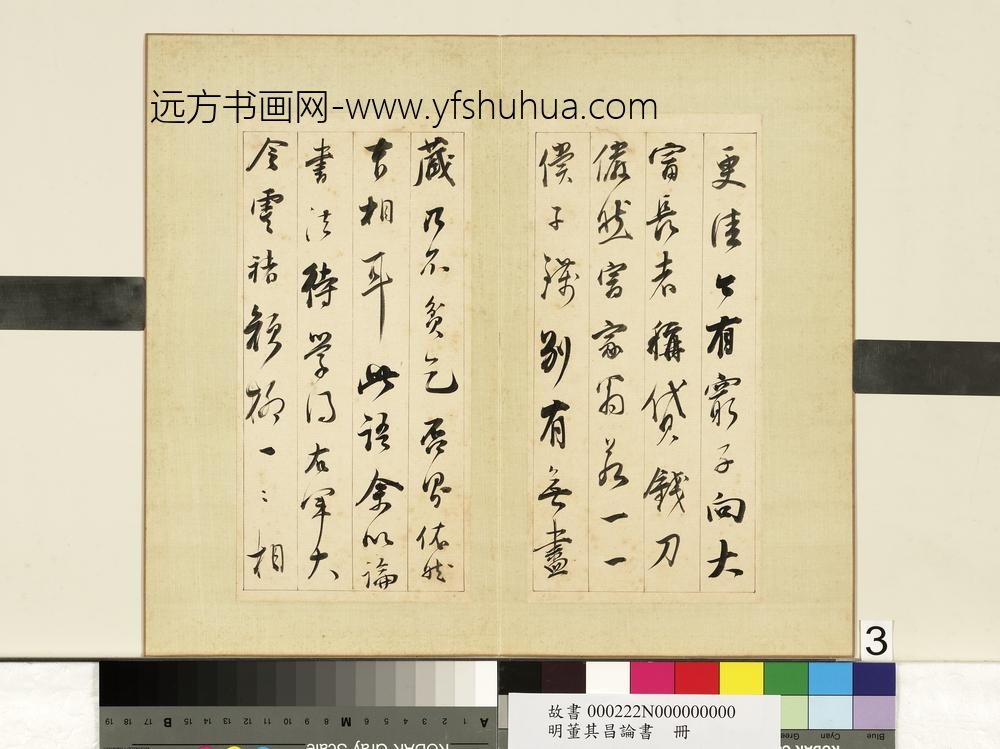 远方书画网-www.yfshuhua.com
更佳有窮子向大
富長者稱貸錢刀
儼然富家翁若一一
償子錢別有無盡
藏乃不貧乞否依然
相耳此語余以論
書法待學得右軍大
令虞褚顏柳一一相
3
故書 000222N000000000
明董其昌論書 冊
19 18 17 B 15 14 13 12 11 10 9 8 M 6 5 4 3 2 1 A
KODAK Gray Scale
Blue Cyan Green